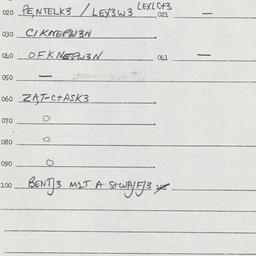 020 PENTELK3 / LEX3W3 LEXLC+3 021 —
030 CIKMEPW3N
040 OFKNEPW3N 041 —
050 —
060 ZAT-C+ASK3
070 O
080 O
090 O
100 BENTJ3 M1T A S+WAJFJ3